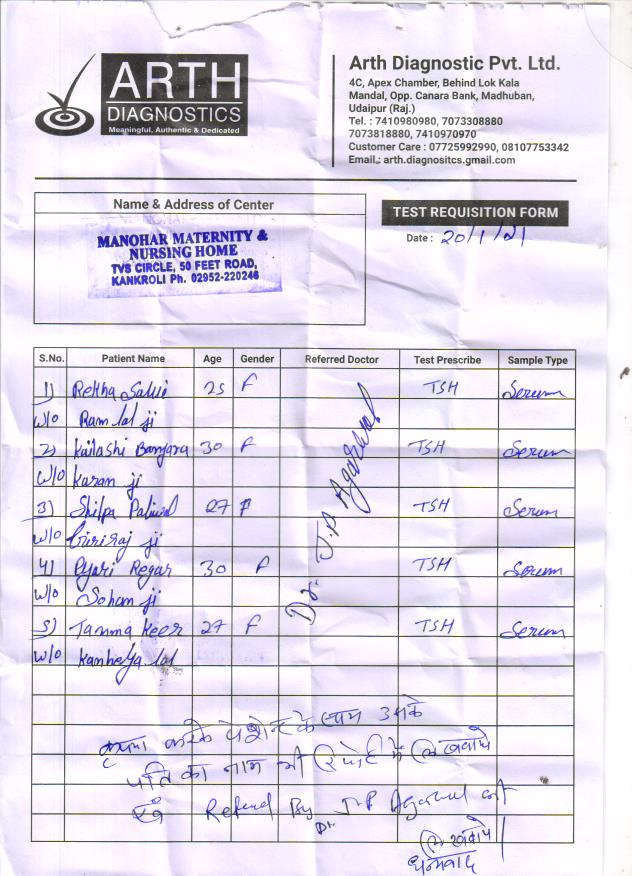 ARTH
DIAGNOSTICS
Meaningful, Authentic & Dedicated
Arth Diagnostic Pvt. Ltd.
4C, Apex Chamber, Behind Lok Kala
Mandal, Opp. Canara Bank, Madhuban,
Udaipur (Raj.)
Tel. : 7410980980, 7073308880
7073818880, 7410970970
Customer Care : 07725992990, 08107753342
Email.: arth.diagnositcs.gmail.com
Name & Address of Center
MANOHAR MATERNITY &
NURSING HOME
TVS CIRCLE, 50 FEET ROAD,
KANKROLI Ph. 02952-220246
TEST REQUISITION FORM
Date : 20/1/21
S.No. Patient Name Age Gender Referred Doctor Test Prescribe Sample Type
1) Rekha Salvi 25 F TSH Serum
w/o Ram lal ji
2) Kailashi Banjara 30 F TSH Serum
w/o Karan ji
3) Shilpa Paliwal 27 F TSH Serum
w/o Giriraj ji
4) Pyari Regar 30 F TSH Serum
w/o Sohan ji
5) Tamma Keer 27 F TSH Serum
w/o Kanheya lal
Dr. J.P Agarwal
कृपया करके पेशेन्ट के साथ उसके
पति का नाम भी रिपोर्ट में लिखवाये
एवं Referred By Dr. J.P Agarwal
लिखवाये
धन्यवाद